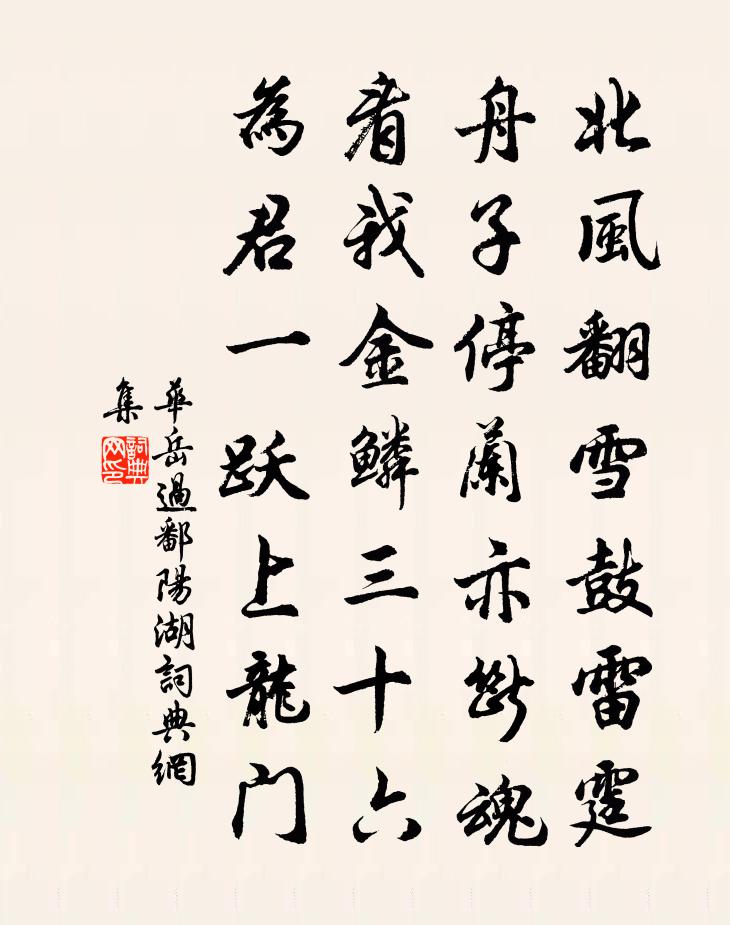 北風翻雪鼓雷霆
舟子停蘭亦斷魂
看我金鱗三十六
為君一跃上龍门
華岳過鄱陽湖詞典網
集
詞典網